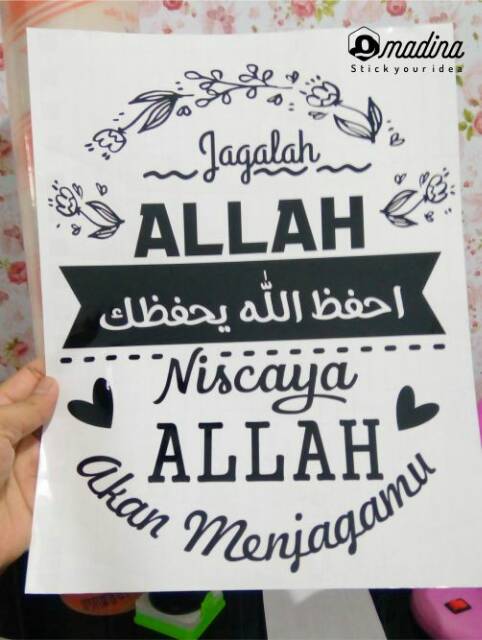 madina
Stick your idea
Jagalah
ALLAH
احفظ الله يحفظك
Niscaya
ALLAH
Akan Menjagamu